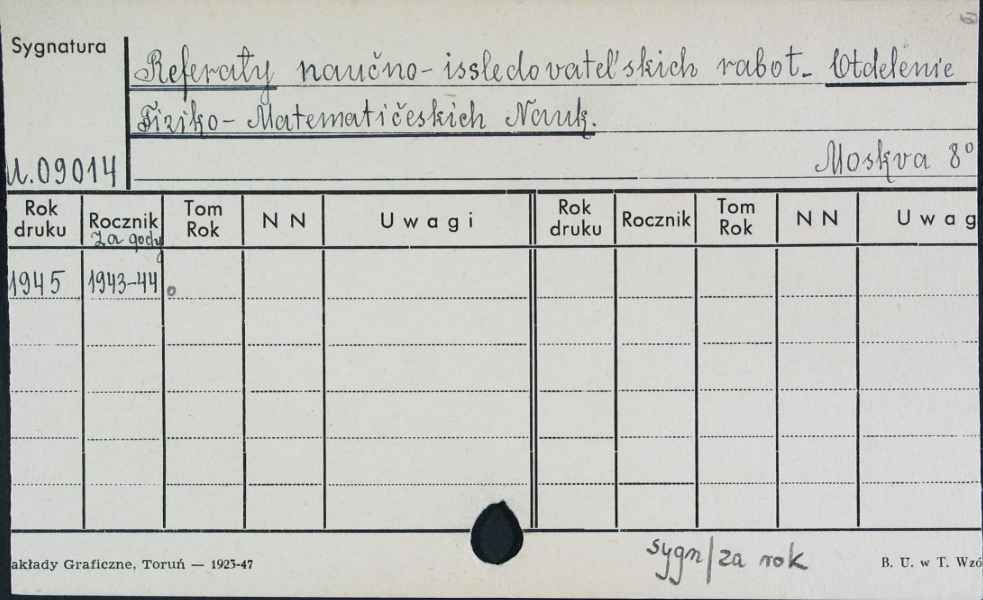 Sygnatura
Referaty naučno-issledovatel'skich rabot. Otdelenie
Fiziko-Matematičeskich Nauk.
Moskva 8°
U.09014
Rok druku Rocznik Tom Rok N N Uwagi Rok druku Rocznik Tom Rok N N Uwag
za gody
1945 1943-44
sygn/za rok
akłady Graficzne, Toruń — 1923-47 B. U. w T. Wzó